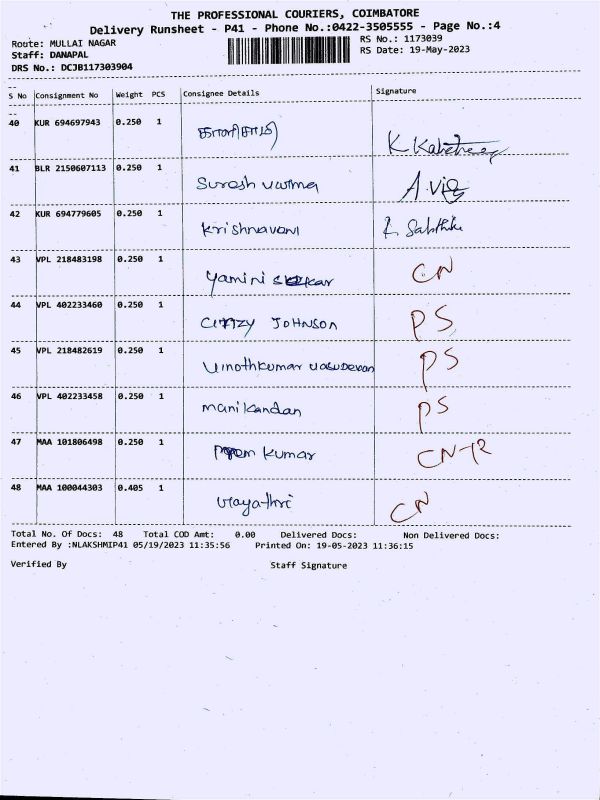 THE PROFESSIONAL COURIERS, COIMBATORE
Delivery Runsheet - P41 - Phone No.:0422-3505555 - Page No.:4
Route: MULLAI NAGAR RS No.: 1173039
Staff: DANAPAL RS Date: 19-May-2023
DRS No.: DCJB117303904
S No Consignment No Weight PCS Consignee Details Signature
40 KUR 694697943 0.250 1
41 BLR 2150607113 0.250 1 Suresh varma
42 KUR 694779605 0.250 1 Krishnavani
43 VPL 218483198 0.250 1 Yamini CN
44 VPL 402233460 0.250 1 JOHNSON PS
45 VPL 218482619 0.250 1 Vinothkumar vasudevan PS
46 VPL 402233458 0.250 1 manikandan PS
47 MAA 101806498 0.250 1 kumar
48 MAA 100044303 0.405 1 CN
Total No. Of Docs: 48 Total COD Amt: 0.00 Delivered Docs: Non Delivered Docs:
Entered By :NLAKSHMIP41 05/19/2023 11:35:56 Printed On: 19-05-2023 11:36:15
Verified By Staff Signature